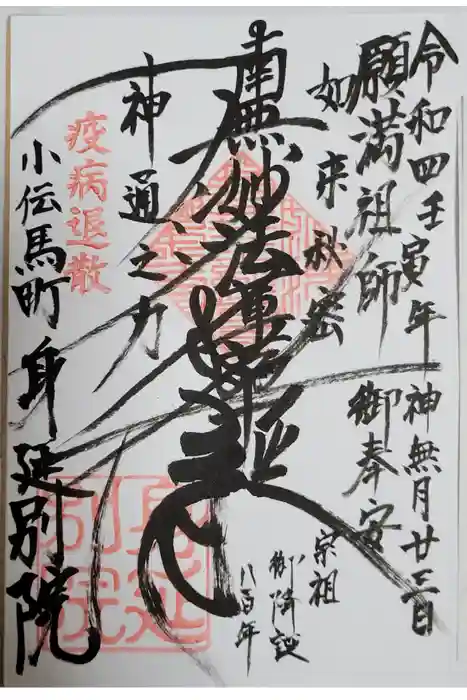 令和四壬寅年 神無月廿三日
願満祖師 御奉安
宗祖
御降誕
八百年
如来秘密
南無妙法蓮華経
神通之力
疫病退散
小伝馬町 身延別院
身延
別院